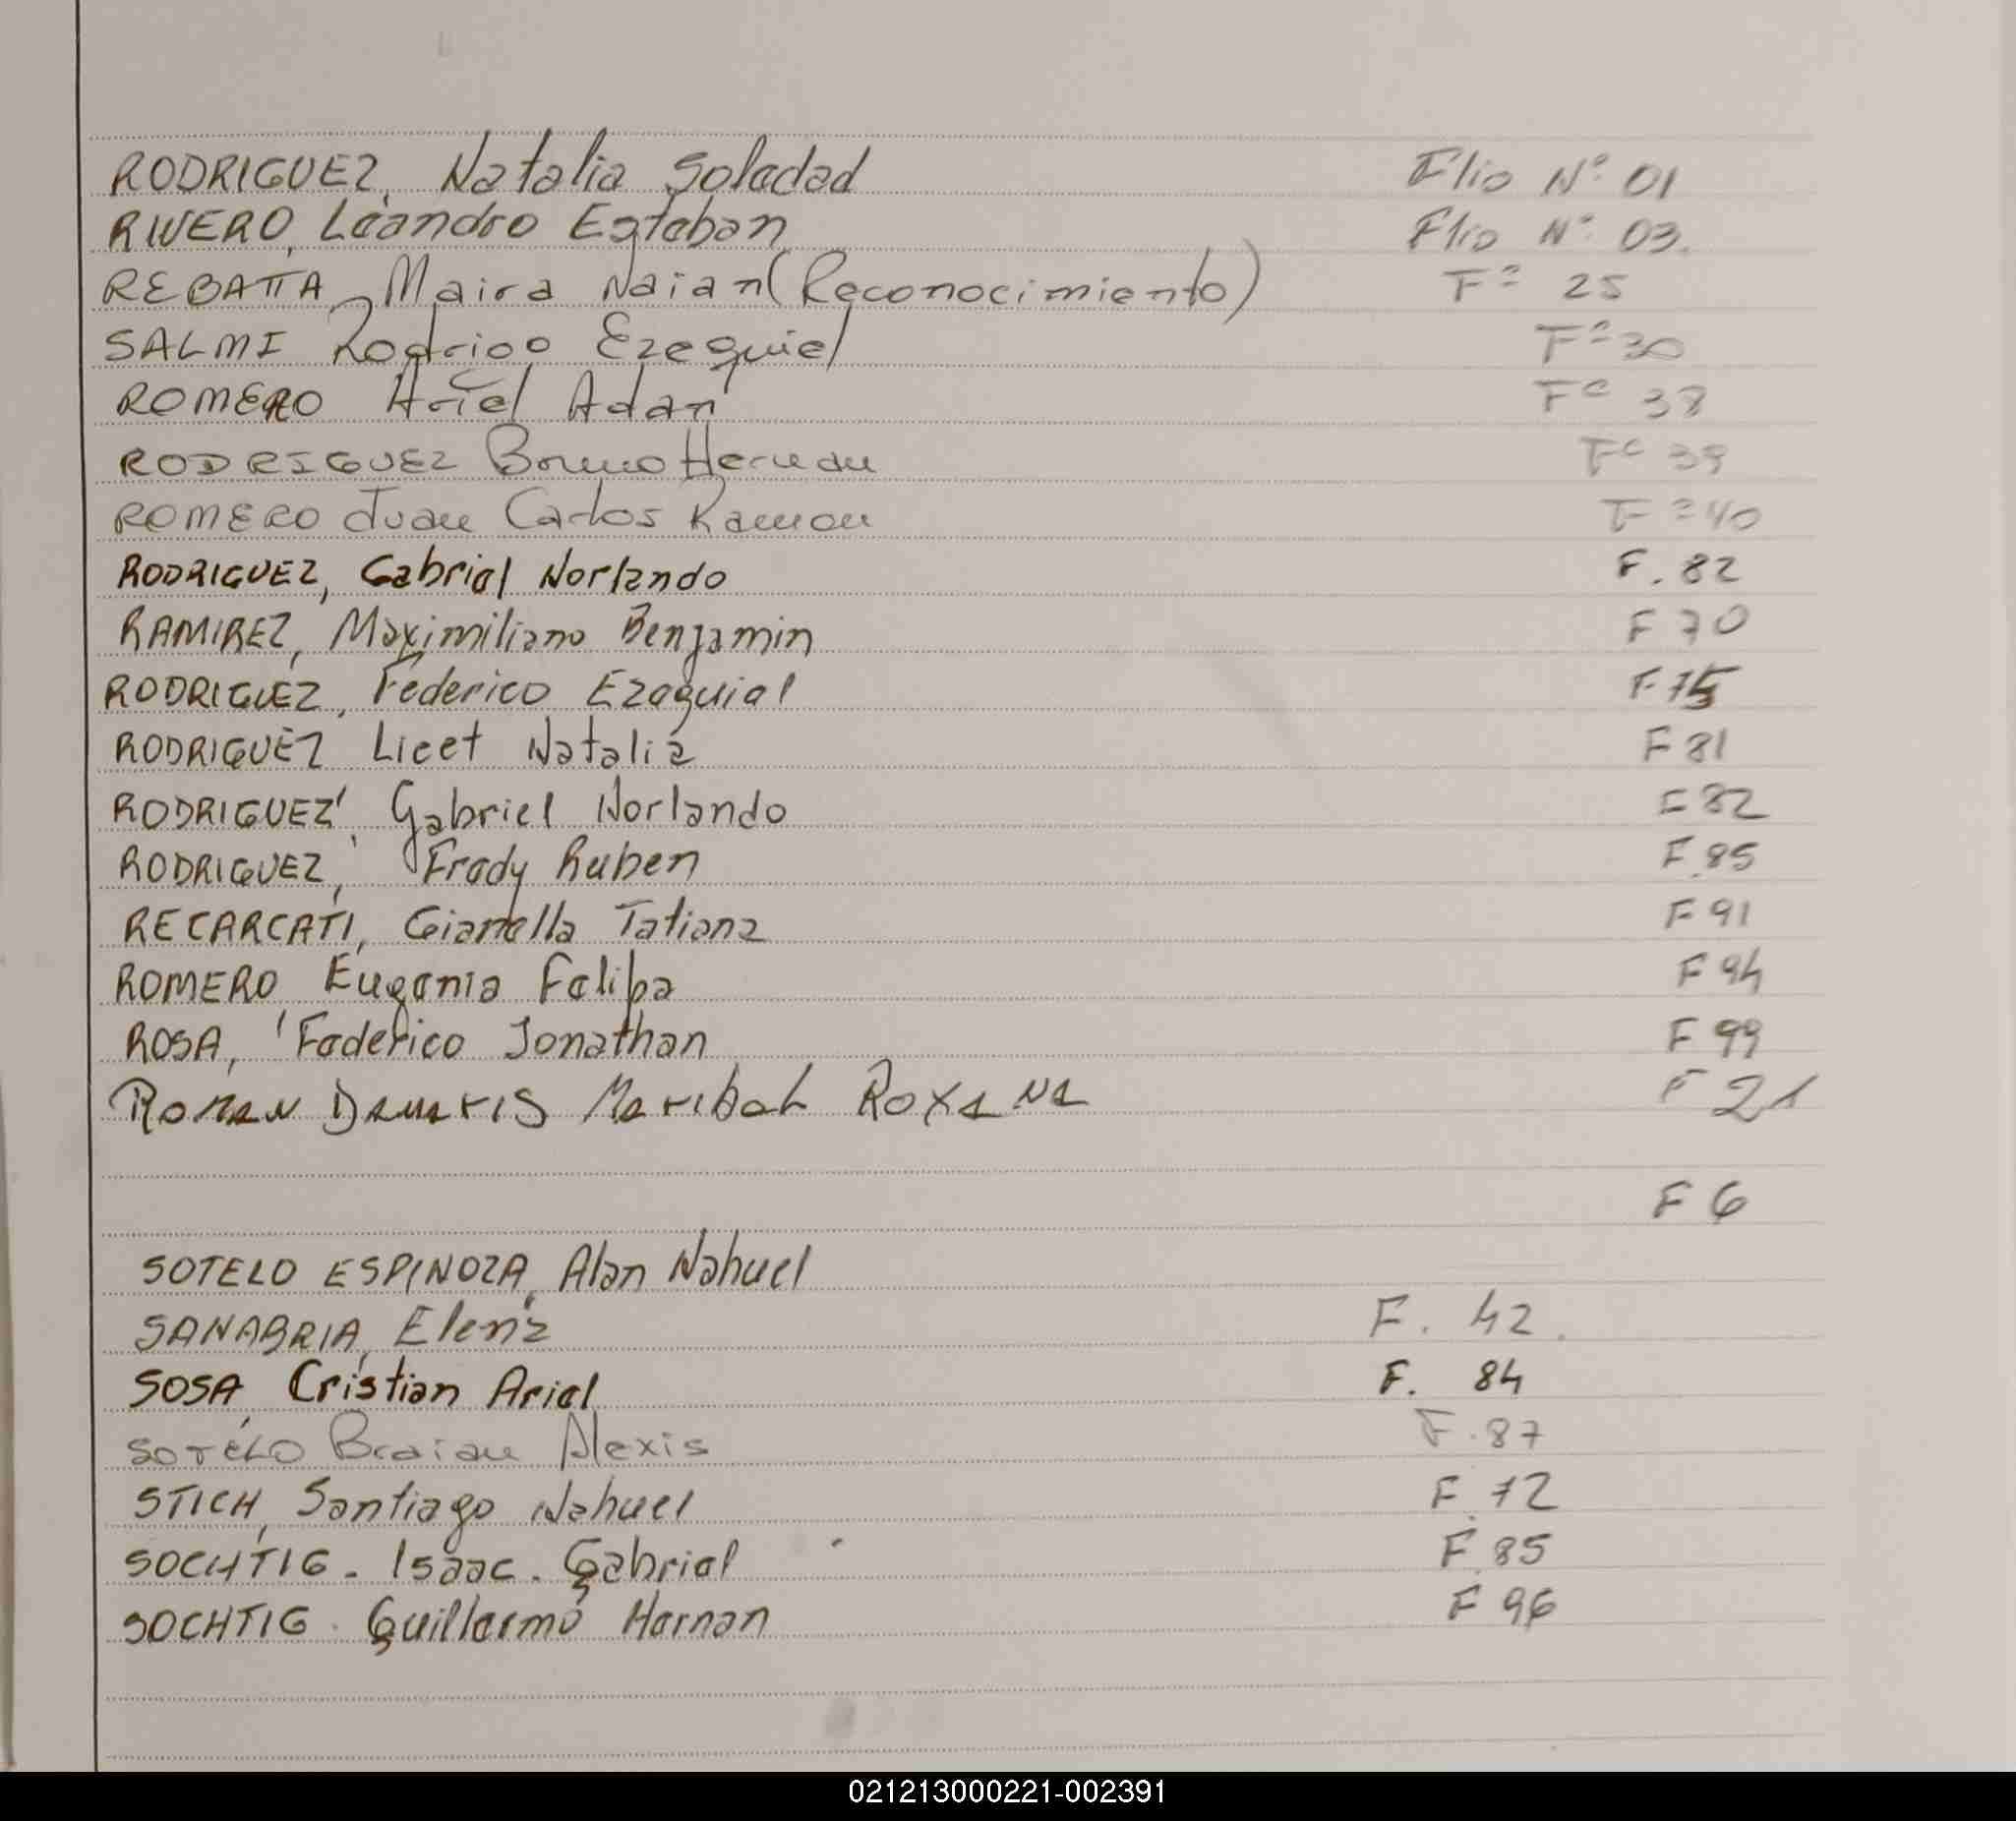 RODRIGUEZ, Natalia Soledad Flio Nº 01
RIVERO, Leandro Esteban Flio Nº 03.
REBATTA, Maira Naian (Reconocimiento) Fº 25
SALMI Rodrigo Ezequiel Fº 30
ROMERO Ariel Adan Fº 38
RODRIGUEZ Bruno Hernan Fº 39
ROMERO Juan Carlos Ramon Fº 40
RODRIGUEZ, Gabriel Norlando F. 82
RAMIREZ, Maximiliano Benjamin F 70
RODRIGUEZ, Federico Ezequiel F 75
RODRIGUEZ Licet Natalia F 81
RODRIGUEZ, Gabriel Norlando F 82
RODRIGUEZ, Fredy Ruben F 85
RECARCATI, Gianella Tatiana F 91
ROMERO Eugenia Felipa F 94
ROSA, Federico Jonathan F 99
ROMAN DAMARIS Maribel ROXANA F 21
F 6
SOTELO ESPINOZA, Alan Nahuel
SANABRIA, Elena F. 42.
SOSA, Cristian Ariel F. 84
SOTELO Braian Alexis F. 87
STICH, Santiago Nahuel F 72
SOCHTIG - Isaac - Gabriel F 85
SOCHTIG - Guillermo Hernan F 96
021213000221-002391